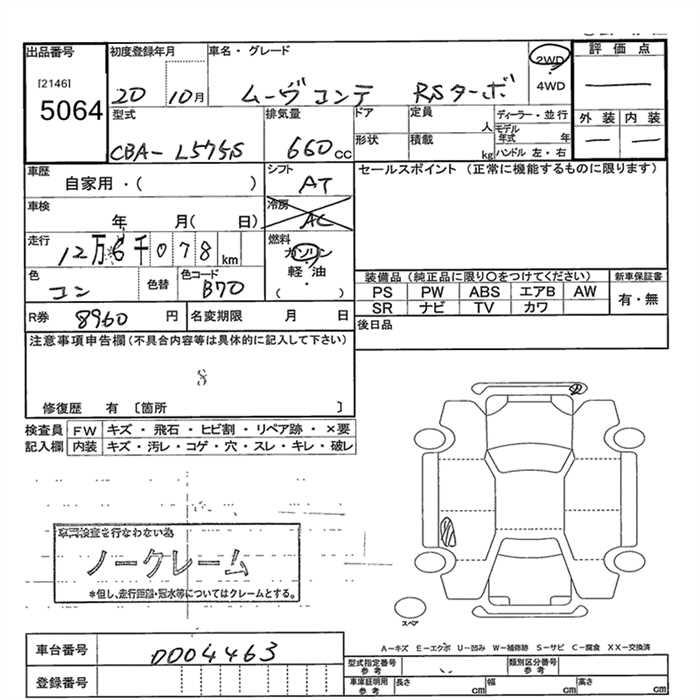 出品番号 初度登録年月 車名・グレード 2WD 評価点
[2146] 20 10月 ムーヴ コンテ RSターボ 4WD
5064 型式 排気量 ドア 定員 人 ディーラー・並行 外装 内装
CBA- L575S 660cc 形状 積載 kg モデル年式 年
ハンドル 左・右
車歴 シフト セールスポイント(正常に機能するものに限ります)
自家用・( ) AT
車検 冷房
年 月( 日) AC
走行 燃料
12万6千078km ガソリン
色 色替 色コード 軽・油
コン B70 ( )
装備品(純正品に限り○をつけてください) 新車保証書
PS PW ABS エアB AW 有・無
SR ナビ TV カワ
R券 8960円 名変期限 月 日 後日品
注意事項申告欄(不具合内容等は具体的に記入して下さい)
S
修復歴 有 〔箇所 〕
検査員 FW キズ・飛石・ヒビ割・リペア跡・×要
記入欄 内装 キズ・汚レ・コゲ・穴・スレ・キレ・破レ
車両検査を行なわない為
ノークレーム
*但し、走行距離・冠水等についてはクレームとする。
スペア
A-キズ E-エクボ U-凹み W-補修跡 S-サビ C-腐食 XX-交換済
車台番号 0004463 型式指定番号 参考 類別区分番号 参考
登録番号 車庫証明用 参考 長さ cm 幅 cm 高さ cm